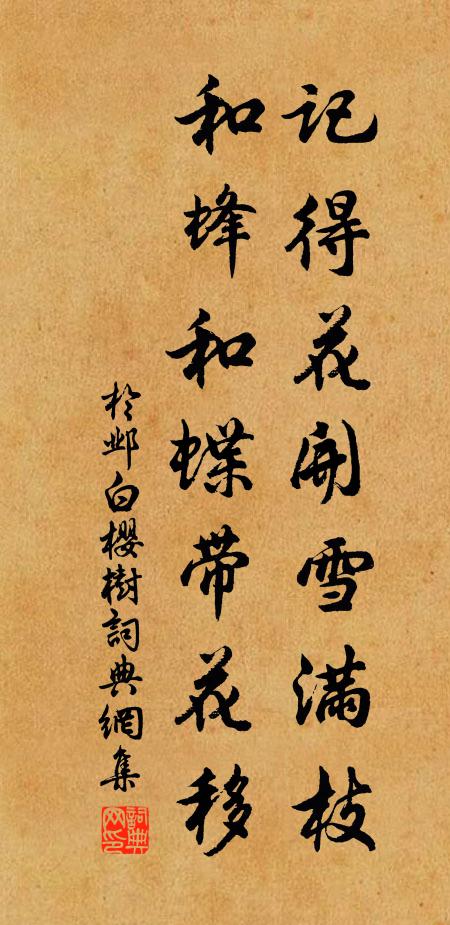 记得花开雪满枝
和蜂和蝶带花移
於邺白樱树詞典網集
詞典
网印